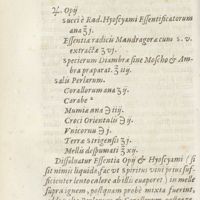 ♃. Opij
succi è Rad. Hyoscyami Essentificatorum
ana ℥j.
Essentia radicis Mandragora cum s. v.
extracta ʒvj.
specierum Diambra sine Moscho & Am
bra præparat. ℥iij.
salis Perlarum.
Corallorum ana ʒij
Carabe
Mumia ana ℈iij
Croci Orientalis ℈ij.
Vnicornu ℈j.
Terra strigensis ʒj.
Mellis despumati ℥xij.
Dissoluatur Essentia Opij & Hyoscyami (si
sit nimis liquida, fac vt spiritus vini prius suf-
ficienter lento calore abilis euaporet) in melle
supra ignem, postquam probè mixta fuerint,
Perlarum & Corallorum